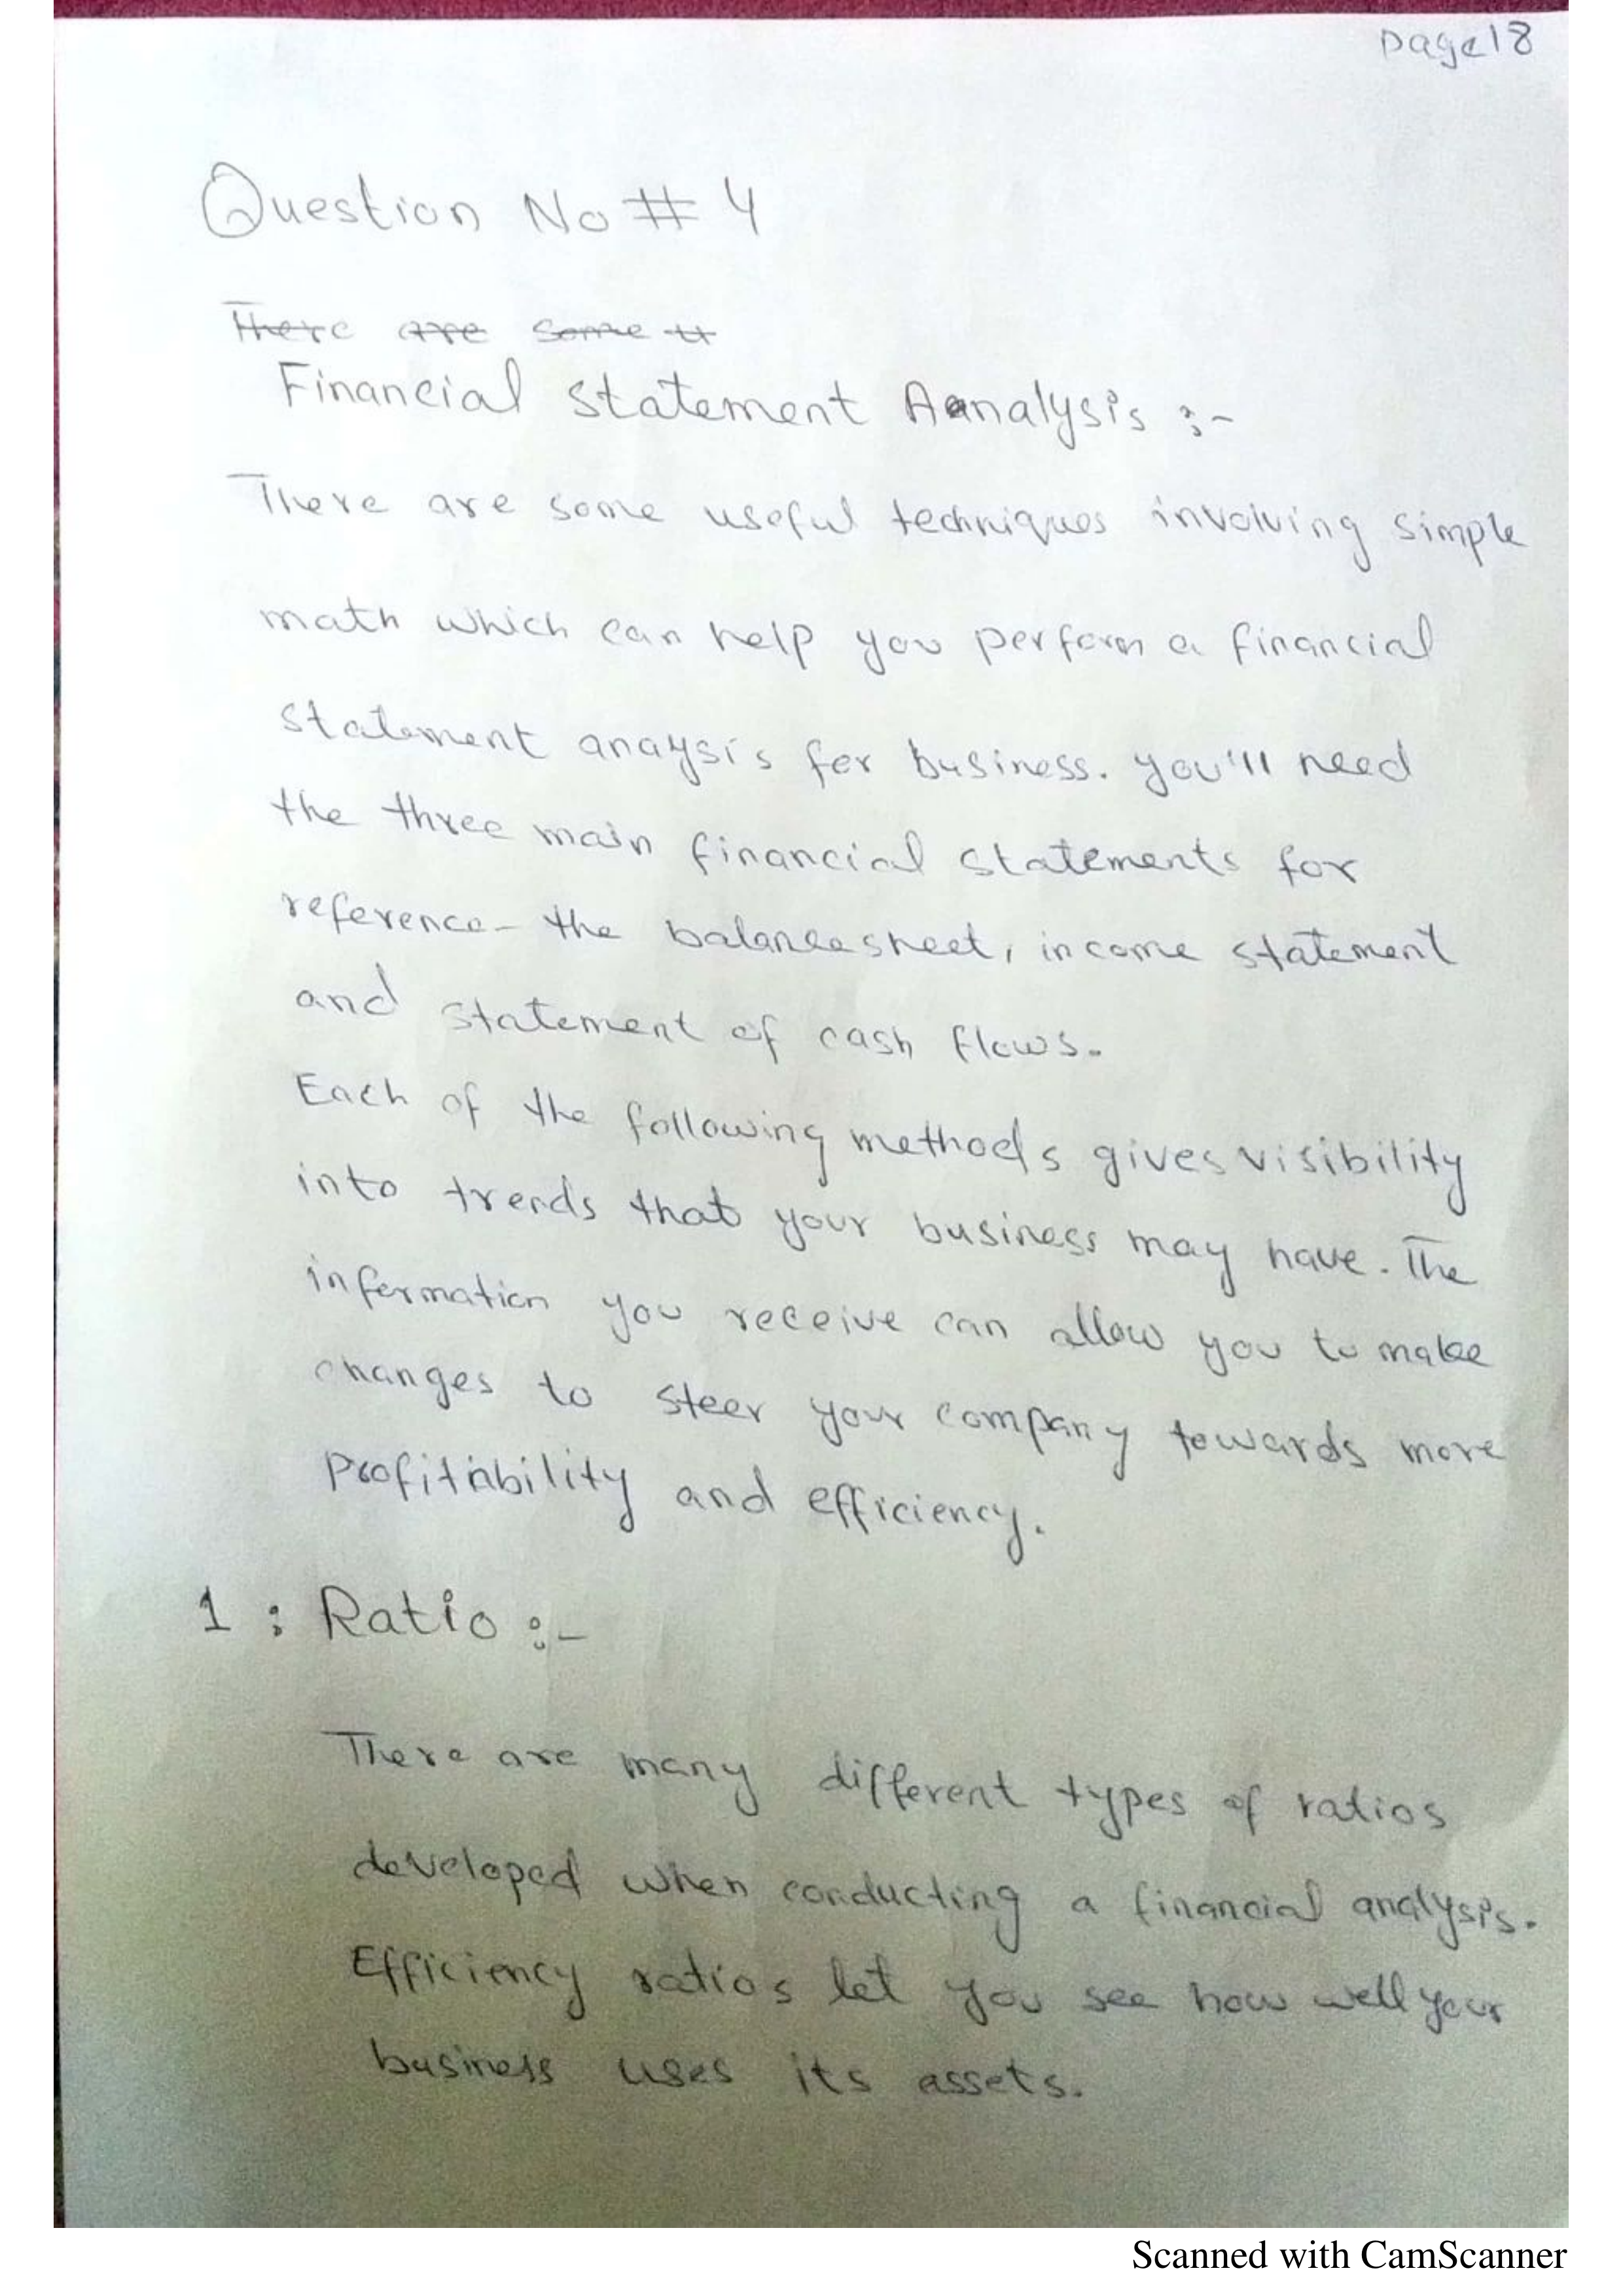 page18
Question No # 4
There are some tt
Financial statement Aanalysis :-
There are some useful techniques involving simple
math which can help you perform a financial
statement anaysis for business. you'll need
the three main financial statements for
reference - the balance sheet, income statement
and statement of cash flows.
Each of the following methods gives visibility
into trends that your business may have. The
information you receive can allow you to make
changes to steer your company towards more
profitability and efficiency.
1 : Ratio :-
There are many different types of ratios
developed when conducting a financial analysis.
Efficiency ratios let you see how well your
business uses its assets.
Scanned with CamScanner